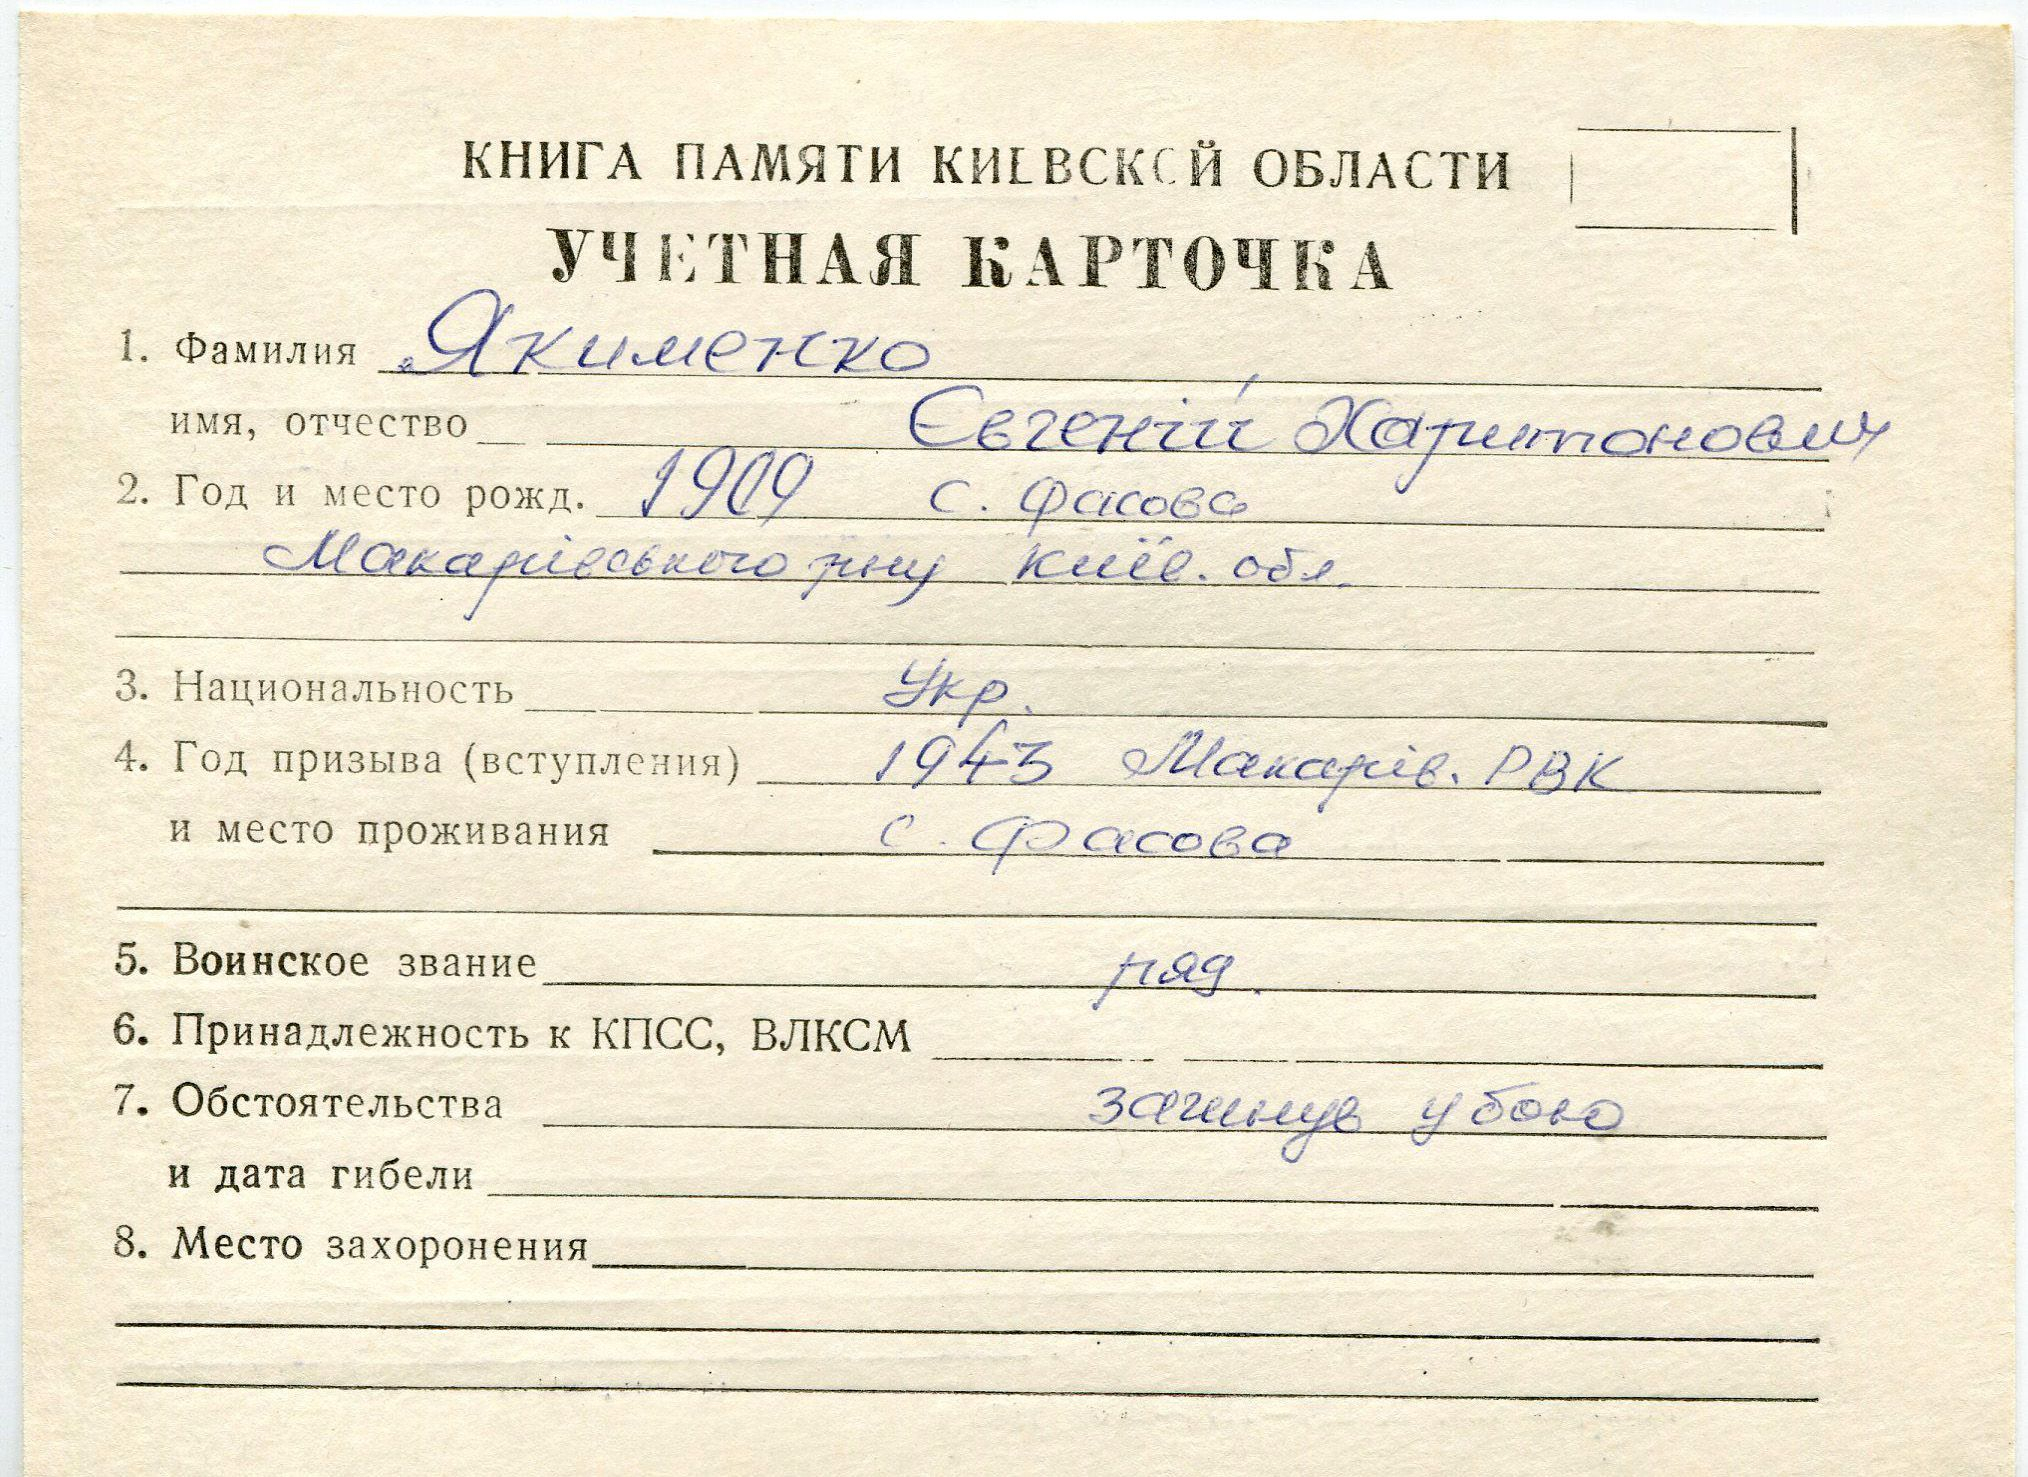 КНИГА ПАМЯТИ КИЕВСКОЙ ОБЛАСТИ
УЧЕТНАЯ КАРТОЧКА
1. Фамилия Якименко
имя, отчество Євгеній Харитонович
2. Год и место рожд. 1909 с. Фасова
Макарівського р-ну Київ. обл.
3. Национальность Укр.
4. Год призыва (вступления) 1943 Макарів. РВК
и место проживания с. Фасова
5. Воинское звание ряд.
6. Принадлежность к КПСС, ВЛКСМ
7. Обстоятельства загинув у бою
и дата гибели
8. Место захоронения